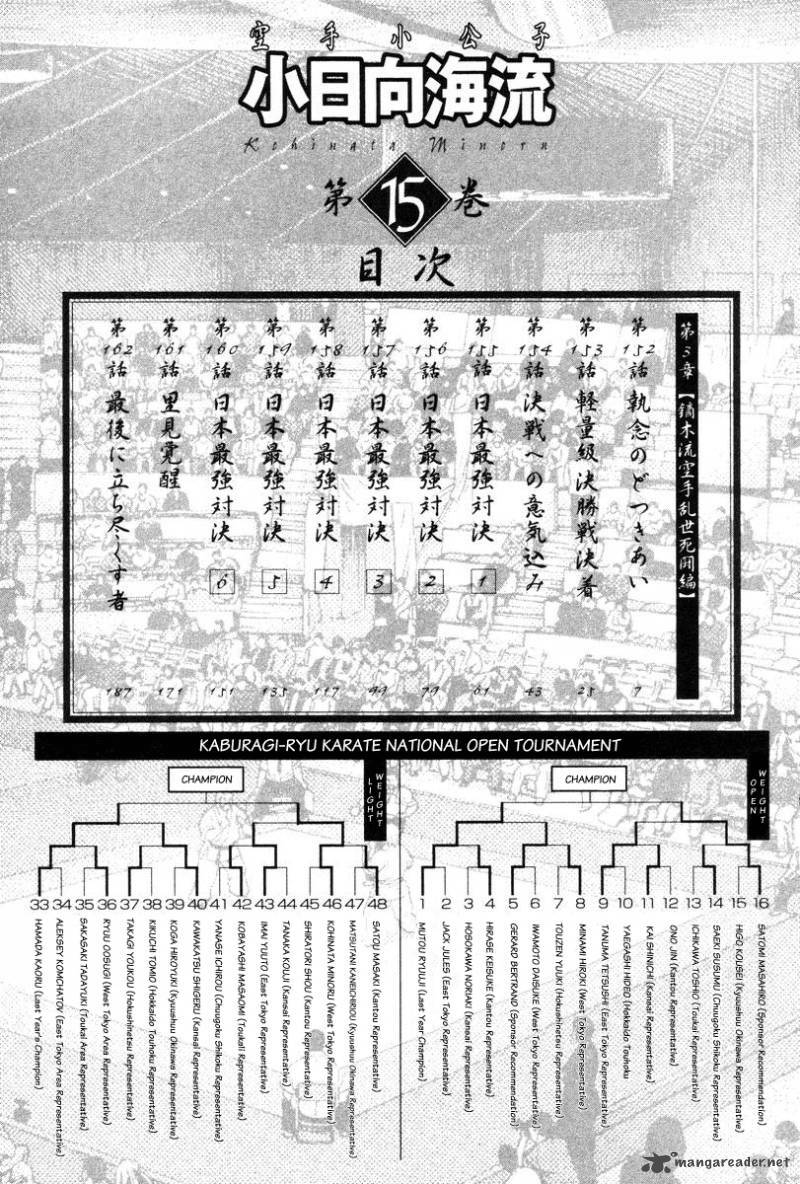 空手小公子
小日向海流
Kohinata Minoru
第15巻
目次
第3章【鏑木流空手乱世死闘編】
第152話 執念のどつきあい 7
第153話 軽量級決勝戦決着 25
第154話 決戦への意気込み 43
第155話 日本最強対決 1 61
第156話 日本最強対決 2 79
第157話 日本最強対決 3 99
第158話 日本最強対決 4 117
第159話 日本最強対決 5 135
第160話 日本最強対決 6 151
第161話 里見覚醒 171
第162話 最後に立ち尽くす者 187
KABURAGI-RYU KARATE NATIONAL OPEN TOURNAMENT
LIGHT WEIGHT
CHAMPION
33 HAMADA KAORU (Last Year's Champion)
34 ALEKSEY KOMCHATOV (East Tokyo Area Representative)
35 SAKASAKI TADAYUKI (Toukai Area Representative)
36 RYUU OOSUGI (West Tokyo Area Representative)
37 TAKAGI YOUKOU (Hokushinetsu Representative)
38 KIKUCHI TOMIO (Hokkaido Touhoku Representative)
39 KOGA HIROYUKI (Kyuushuu Okinawa Representative)
40 KAWAKATSU SHIGERU (Kansai Representative)
41 YANASE ICHIROU (Chuugoku Shikoku Representative)
42 KOBAYASHI MASAOMI (Toukai Representative)
43 IMAI YUUTO (East Tokyo Representative)
44 TANAKA KOUJI (Kansai Representative)
45 SHIRATORI SHOU (Kantou Representative)
46 KOHINATA MINORU (West Tokyo Representative)
47 MATSUTANI KANEICHIROU (Kyuushuu Okinawa Representative)
48 SATOU MASAKI (Kantou Representative)
OPEN WEIGHT
CHAMPION
1 MUTOU RYUUJI (Last Year Champion)
2 JACK JULES (East Tokyo Representative)
3 HOSOKAWA NORIAKI (Kansai Representative)
4 HIRASE KEISUKE (Kantou Representative)
5 GERARD BERTRAND (Sponsor Recommendation)
6 IWAMOTO DAISUKE (West Tokyo Representative)
7 TOUZEN YUUKI (Hokushinetsu Representative)
8 MINAMI HIROKI (West Tokyo Representative)
9 TANUMA TETSUSHI (East Tokyo Representative)
10 YAEGASHI HIDEO (Hokkaido Touhoku
11 KAI SHINICHI (Kansai Representative)
12 ONO JIN (Kantou Representative)
13 ICHIKAWA TOSHIO (Toukai Representative)
14 SAEKI SUSUMU (Chuugoku Shikoku Representative)
15 HIGO KOUSEI (Kyuushuu Okinawa Representative)
16 SATOMI MASAHIKO (Sponsor Recommendation)
mangareader.net